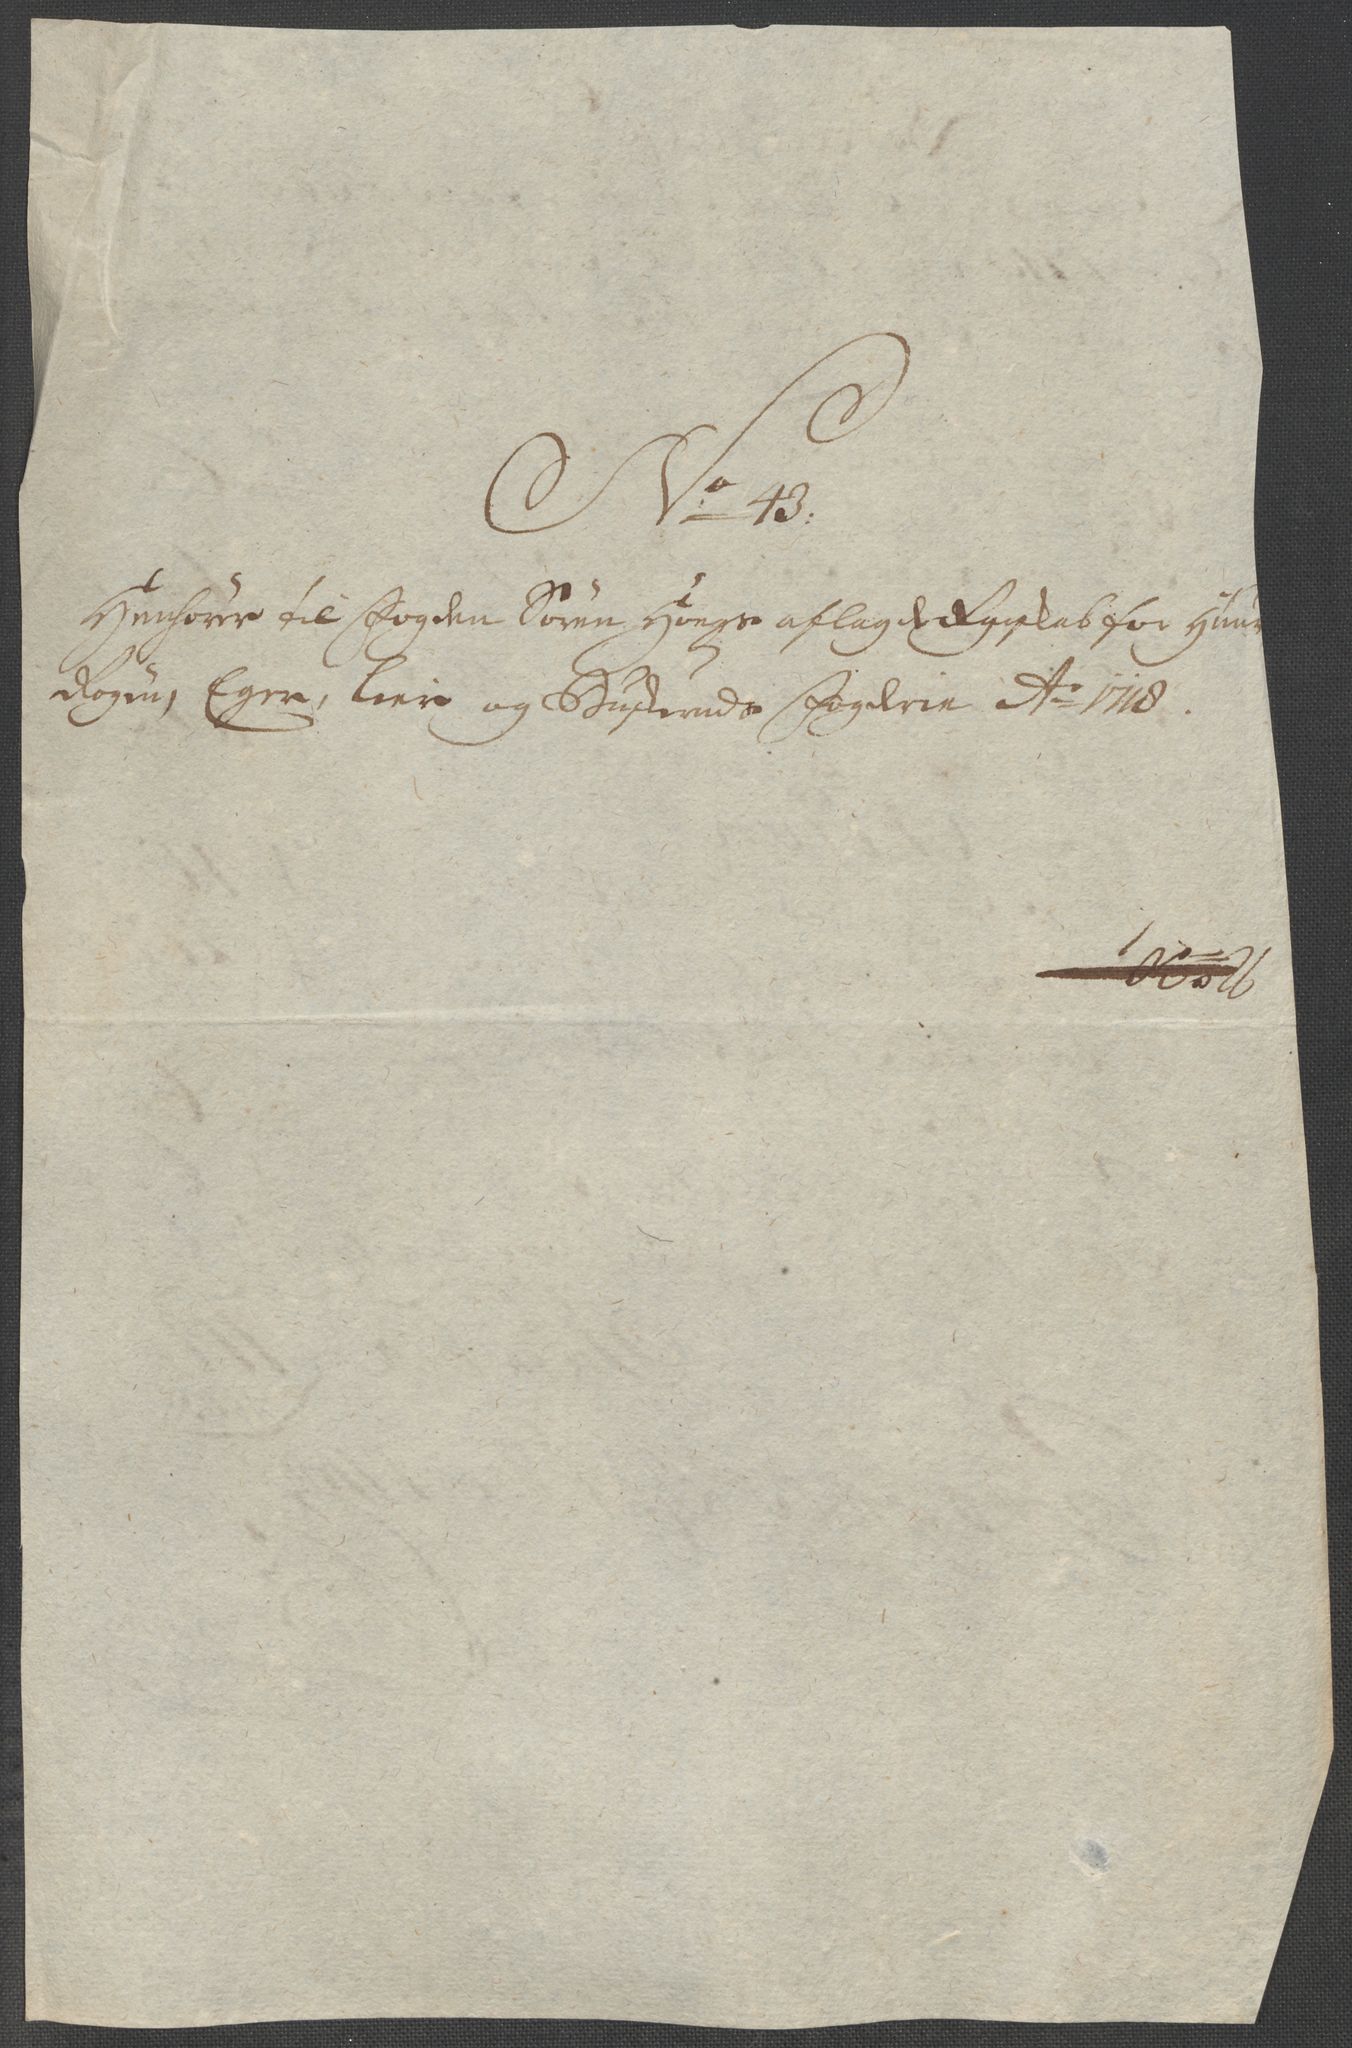 No 43:
Henhörer til Fogden Sören Höegs aflagde Regnskab for Huu
Rögen, Eger, Lier og Buskeruds Fogderie Ao 1718.